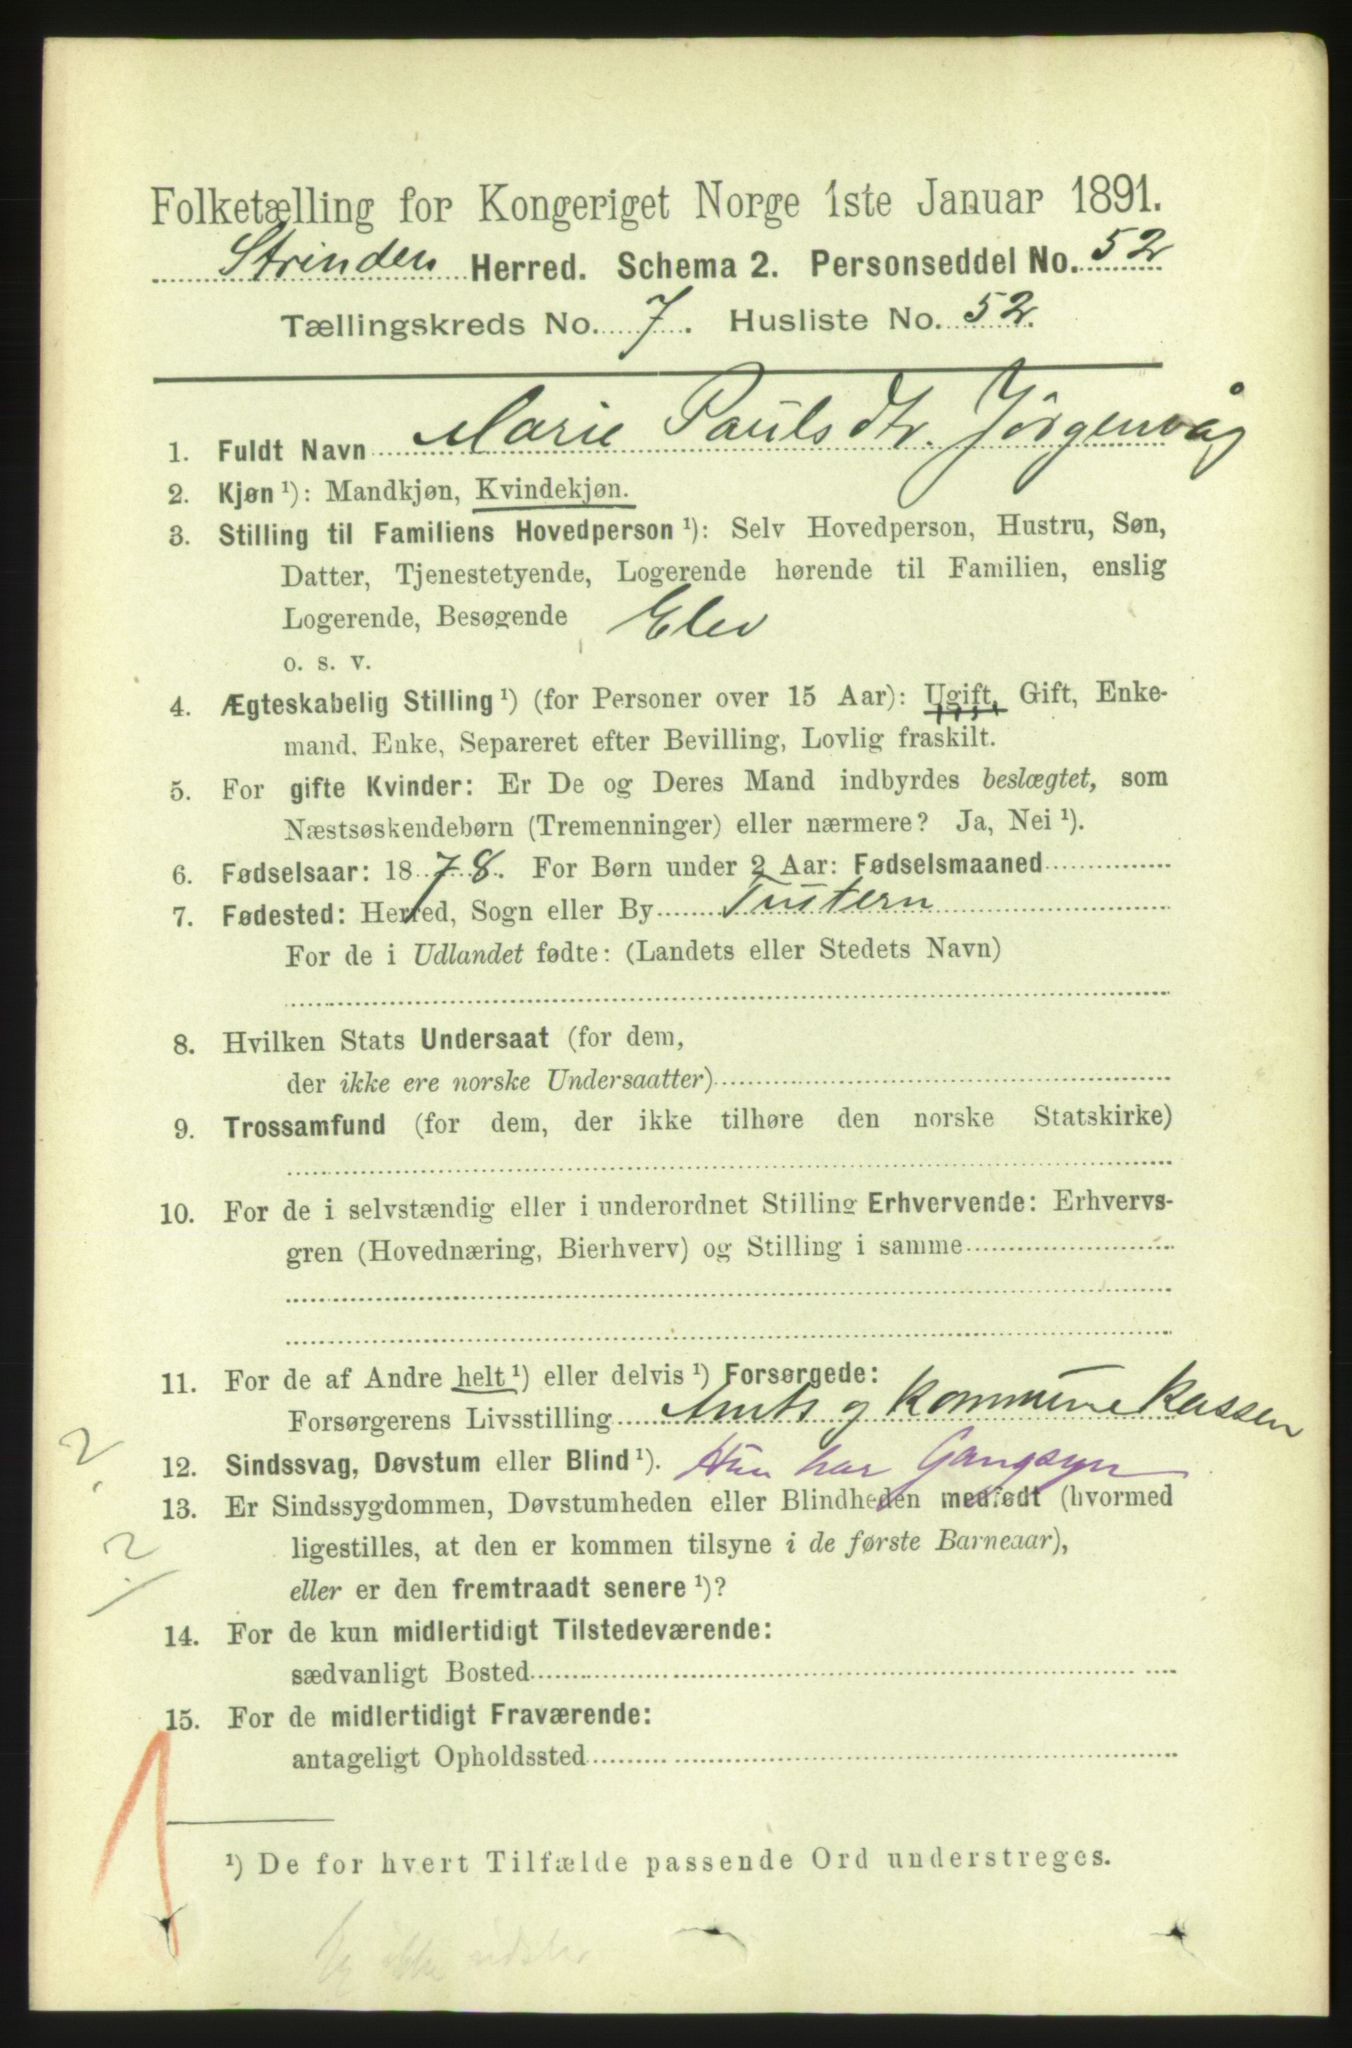 Folketælling for Kongeriget Norge 1ste Januar 1891.
Strinden Herred. Schema 2. Personseddel No. 52
Tællingskreds No. 7. Husliste No. 52.
1. Fuldt Navn Marie Paulsdtr. Jørgenvåg
2. Kjøn ¹): Mandkjøn, Kvindekjøn.
3. Stilling til Familiens Hovedperson ¹): Selv Hovedperson, Hustru, Søn,
Datter, Tjenestetyende, Logerende hørende til Familien, enslig
Logerende, Besøgende Elev
o. s. v.
4. Ægteskabelig Stilling ¹) (for Personer over 15 Aar): Ugift, Gift, Enke-
mand, Enke, Separeret efter Bevilling, Lovlig fraskilt.
5. For gifte Kvinder: Er De og Deres Mand indbyrdes beslægtet, som
Næstsøskendebørn (Tremenninger) eller nærmere? Ja, Nei ¹).
6. Fødselsaar: 1878. For Børn under 2 Aar: Fødselsmaaned
7. Fødested: Herred, Sogn eller By Tustern
For de i Udlandet fødte: (Landets eller Stedets Navn)
8. Hvilken Stats Undersaat (for dem,
der ikke ere norske Undersaatter)
9. Trossamfund (for dem, der ikke tilhøre den norske Statskirke)
10. For de i selvstændig eller i underordnet Stilling Erhvervende: Erhvervs-
gren (Hovednæring, Bierhverv) og Stilling i samme
11. For de af Andre helt ¹) eller delvis ¹) Forsørgede:
Forsørgerens Livsstilling Amts og Kommunekassen
12. Sindssvag, Døvstum eller Blind ¹). Hun har Gangsyn
13. Er Sindssygdommen, Døvstumheden eller Blindheden medfødt (hvormed
ligestilles, at den er kommen tilsyne i de første Barneaar),
eller er den fremtraadt senere ¹)?
14. For de kun midlertidigt Tilstedeværende:
sædvanligt Bosted
15. For de midlertidigt Fraværende:
antageligt Opholdssted
¹) De for hvert Tilfælde passende Ord understreges.
? 
?
1